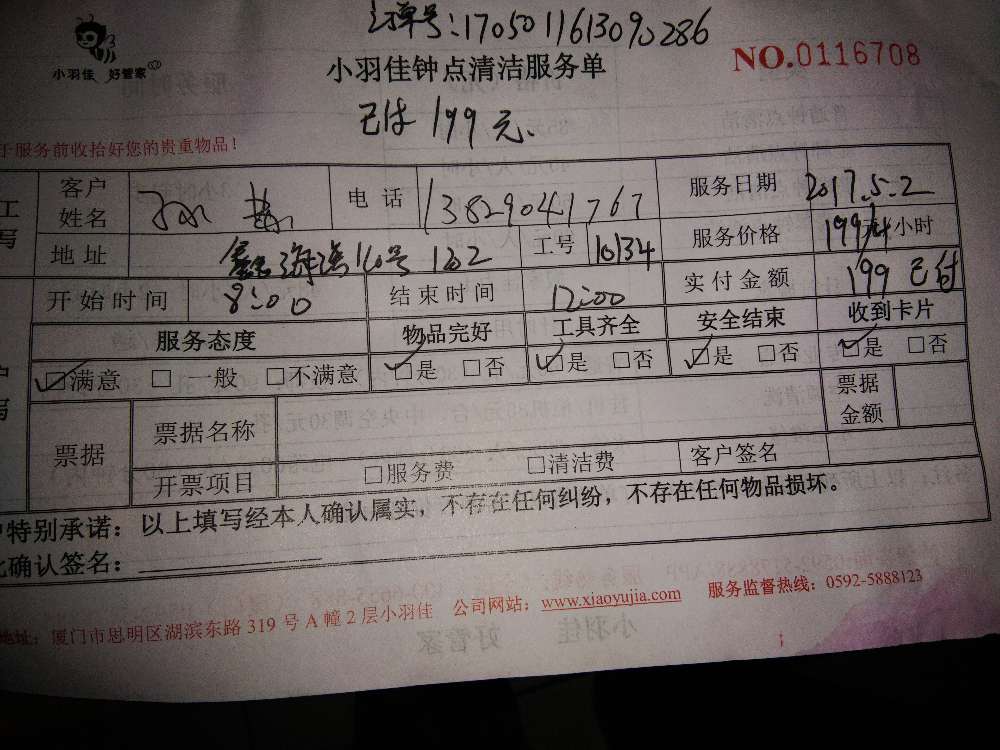 订单号:170501161309286
小羽佳 好管家
小羽佳钟点清洁服务单
NO.0116708
已付 199元.
于服务前收拾好您的贵重物品!
客户姓名 电话 13829041767 服务日期 2017.5.2
地址 160号 102 工号 10134 服务价格 199元/4小时
开始时间 8:00 结束时间 12:00 实付金额 199 已付
服务态度 物品完好 工具齐全 安全结束 收到卡片
☑满意 □一般 □不满意 ☑是 □否 ☑是 □否 ☑是 □否 ☑是 □否
票据 票据名称 票据金额
开票项目 □服务费 □清洁费 客户签名
特别承诺:以上填写经本人确认属实,不存在任何纠纷,不存在任何物品损坏。
确认签名:
地址:厦门市思明区湖滨东路319号A幢2层小羽佳 公司网站:www.xiaoyujia.com 服务监督热线:0592-5888123